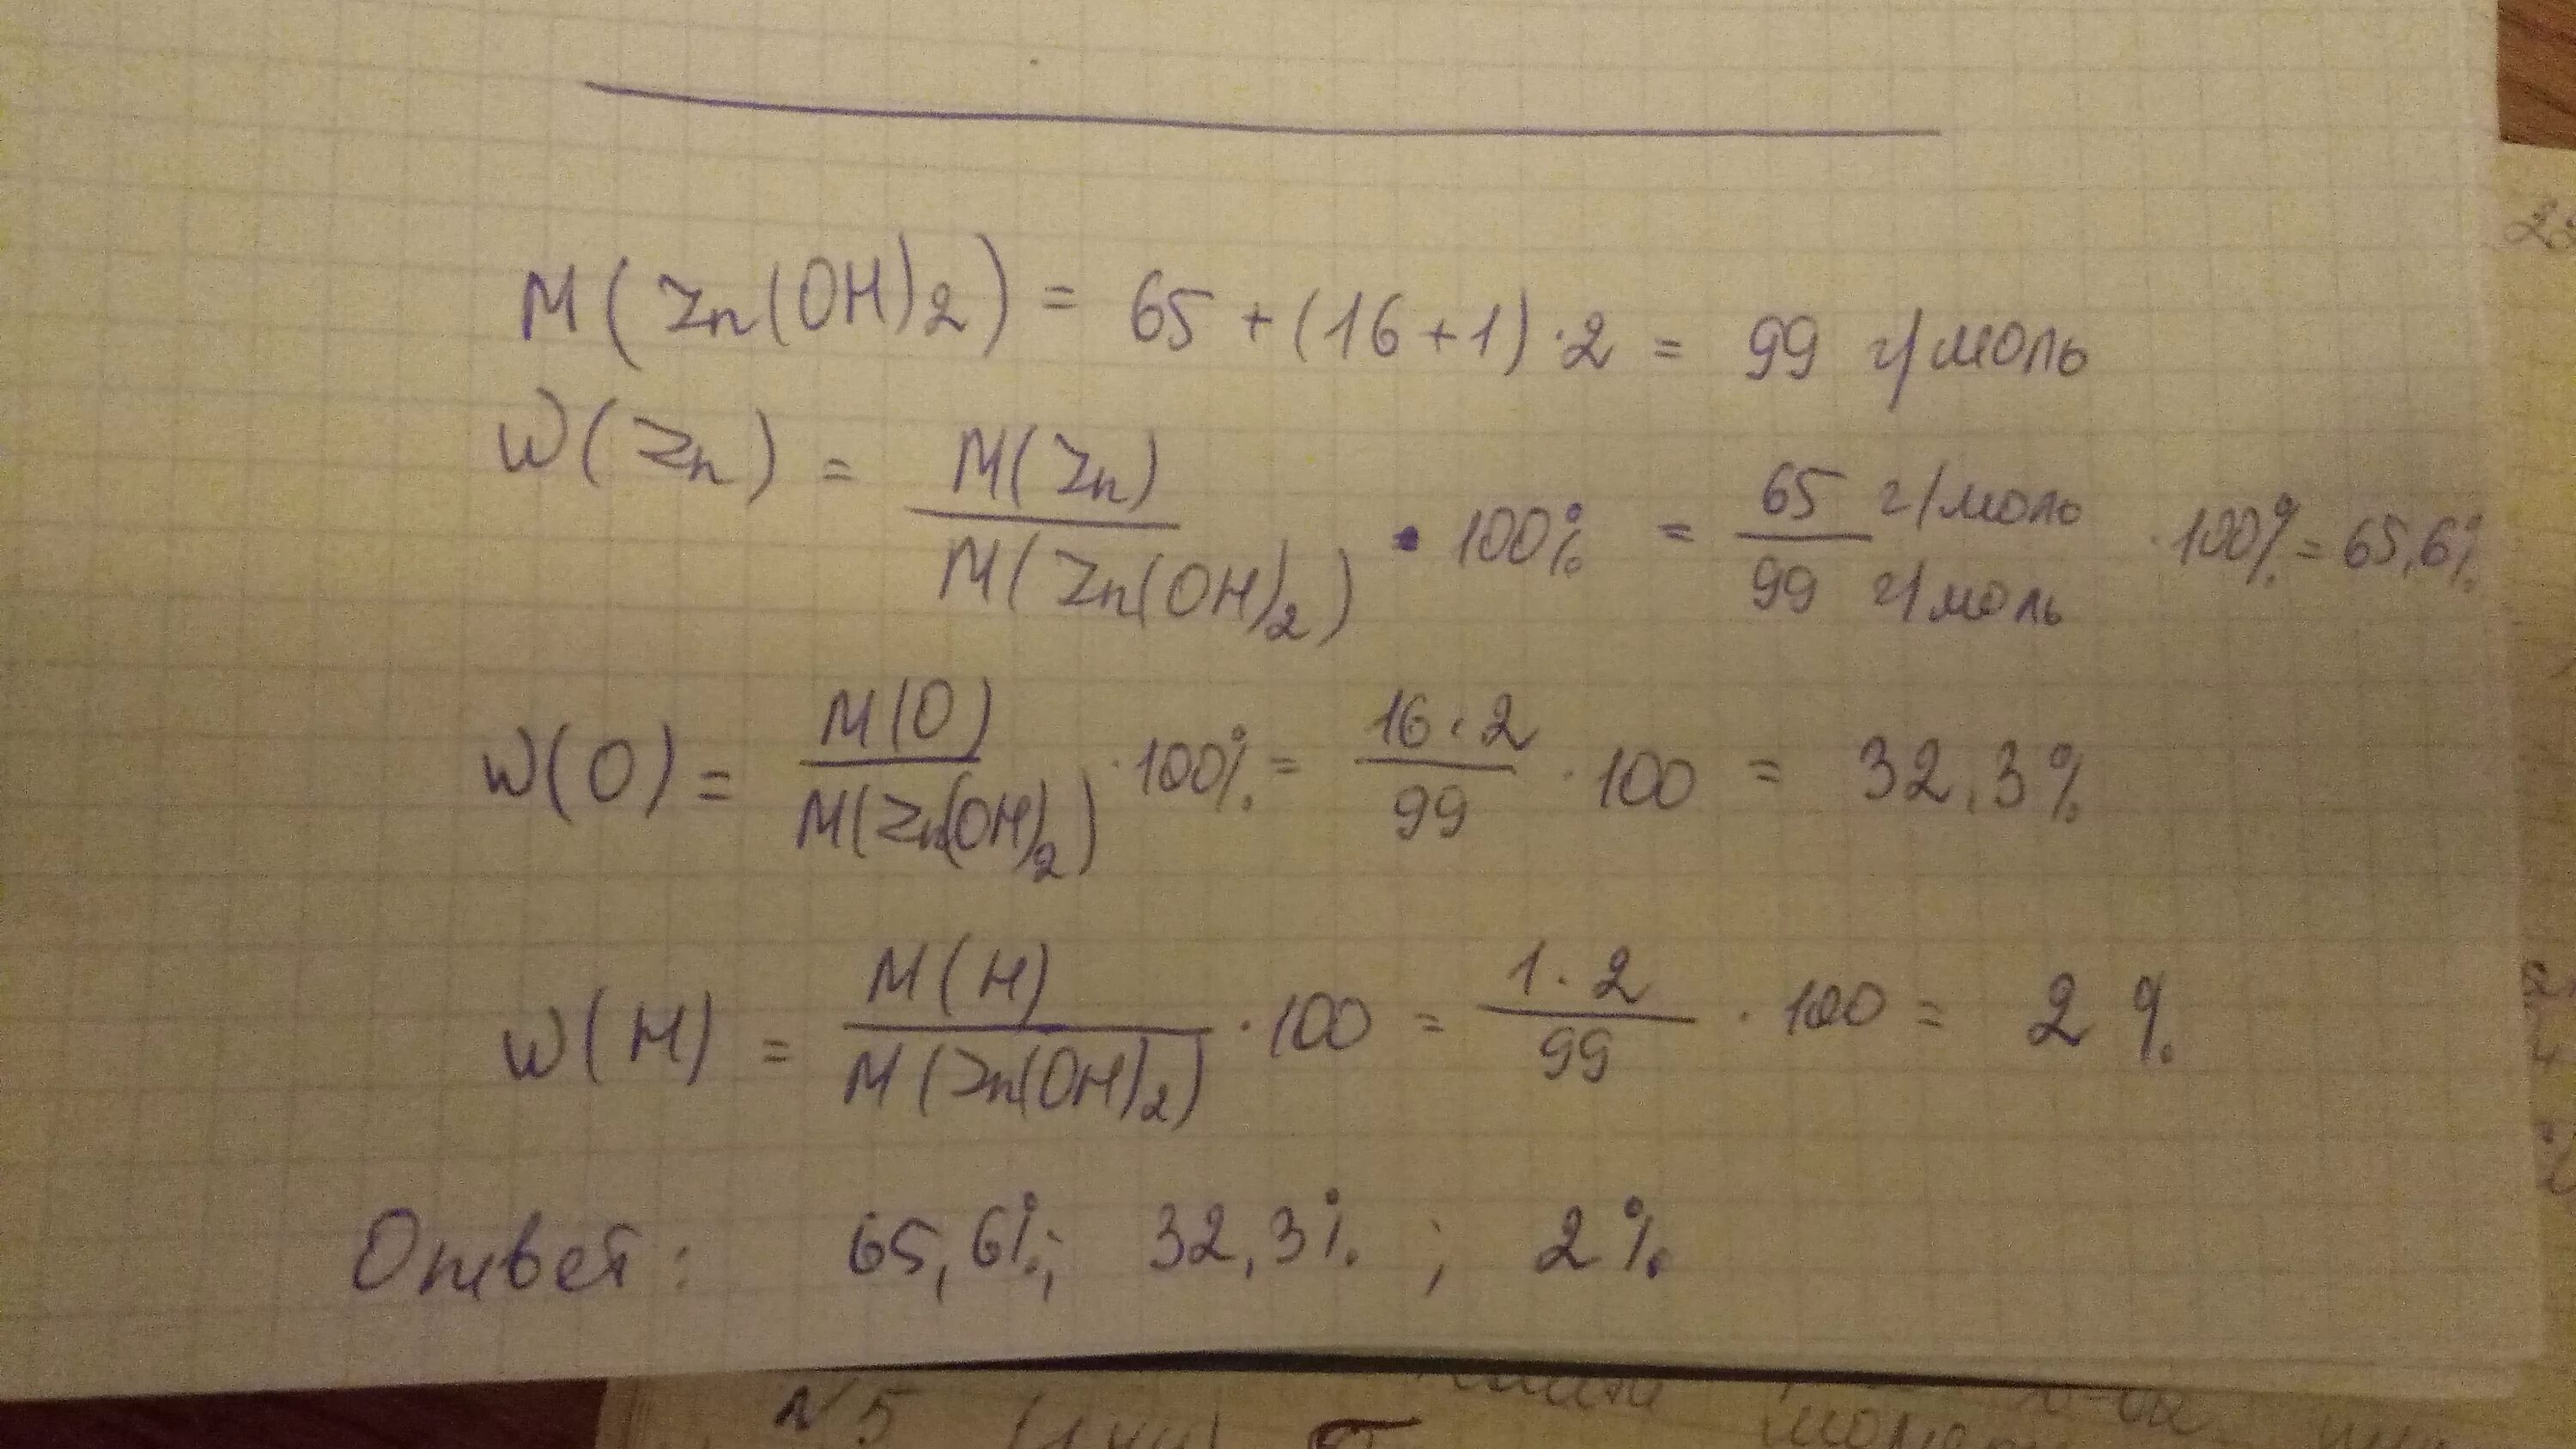 M(Zn(OH)2) = 65 + (16+1)·2 = 99 г/моль
W(Zn) = M(Zn) / M(Zn(OH)2) · 100% = 65 г/моль / 99 г/моль · 100% = 65,6%
W(O) = M(O) / M(Zn(OH)2) · 100% = 16·2 / 99 · 100 = 32,3%
W(H) = M(H) / M(Zn(OH)2) · 100 = 1·2 / 99 · 100 = 2%
Ответ: 65,6%; 32,3%; 2%
№5